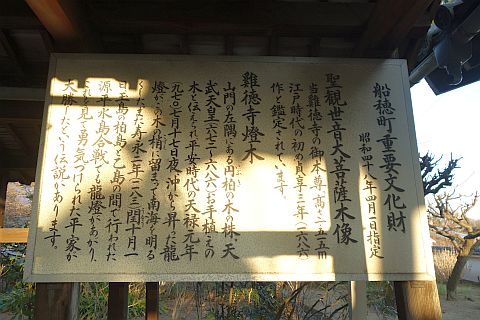 船穂町重要文化財
昭和四十八年四月一日指定
聖観世音大菩薩木像
当難徳寺の御本尊、高さ一五五m
江戸時代の初の貞享三年(一六八六)
作と鑑定されています。
難徳寺燈木
山門の左隅にある円柏の木の株で天
武天皇(六七二~六八六)お手植えの
木と伝えられ平安時代の天禄元年
(九七〇)七月十七日夜、沖から昇った龍
燈がこの木の梢に留まって南海を明る
くした。また寿永二年(一一八三)閏十月一
日玉島の柏島と乙島の間で行われた
源平水島合戦でも龍燈があがり、
これを見て勇気づけられた平家が
大勝したという伝説があります。